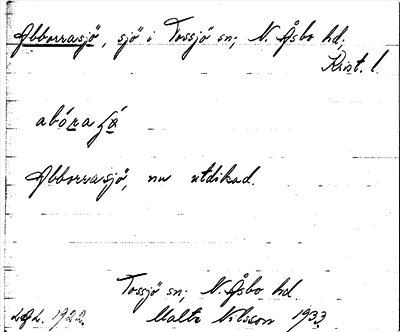 Abborrasjö, sjö i Tossjö sn; N. Åsbo hd;
Krist. l.
abóra
Abborrasjö, nu utdikad.
Tossjö sn; N. Åsbo hd
1922. Malte Nilsson 1933